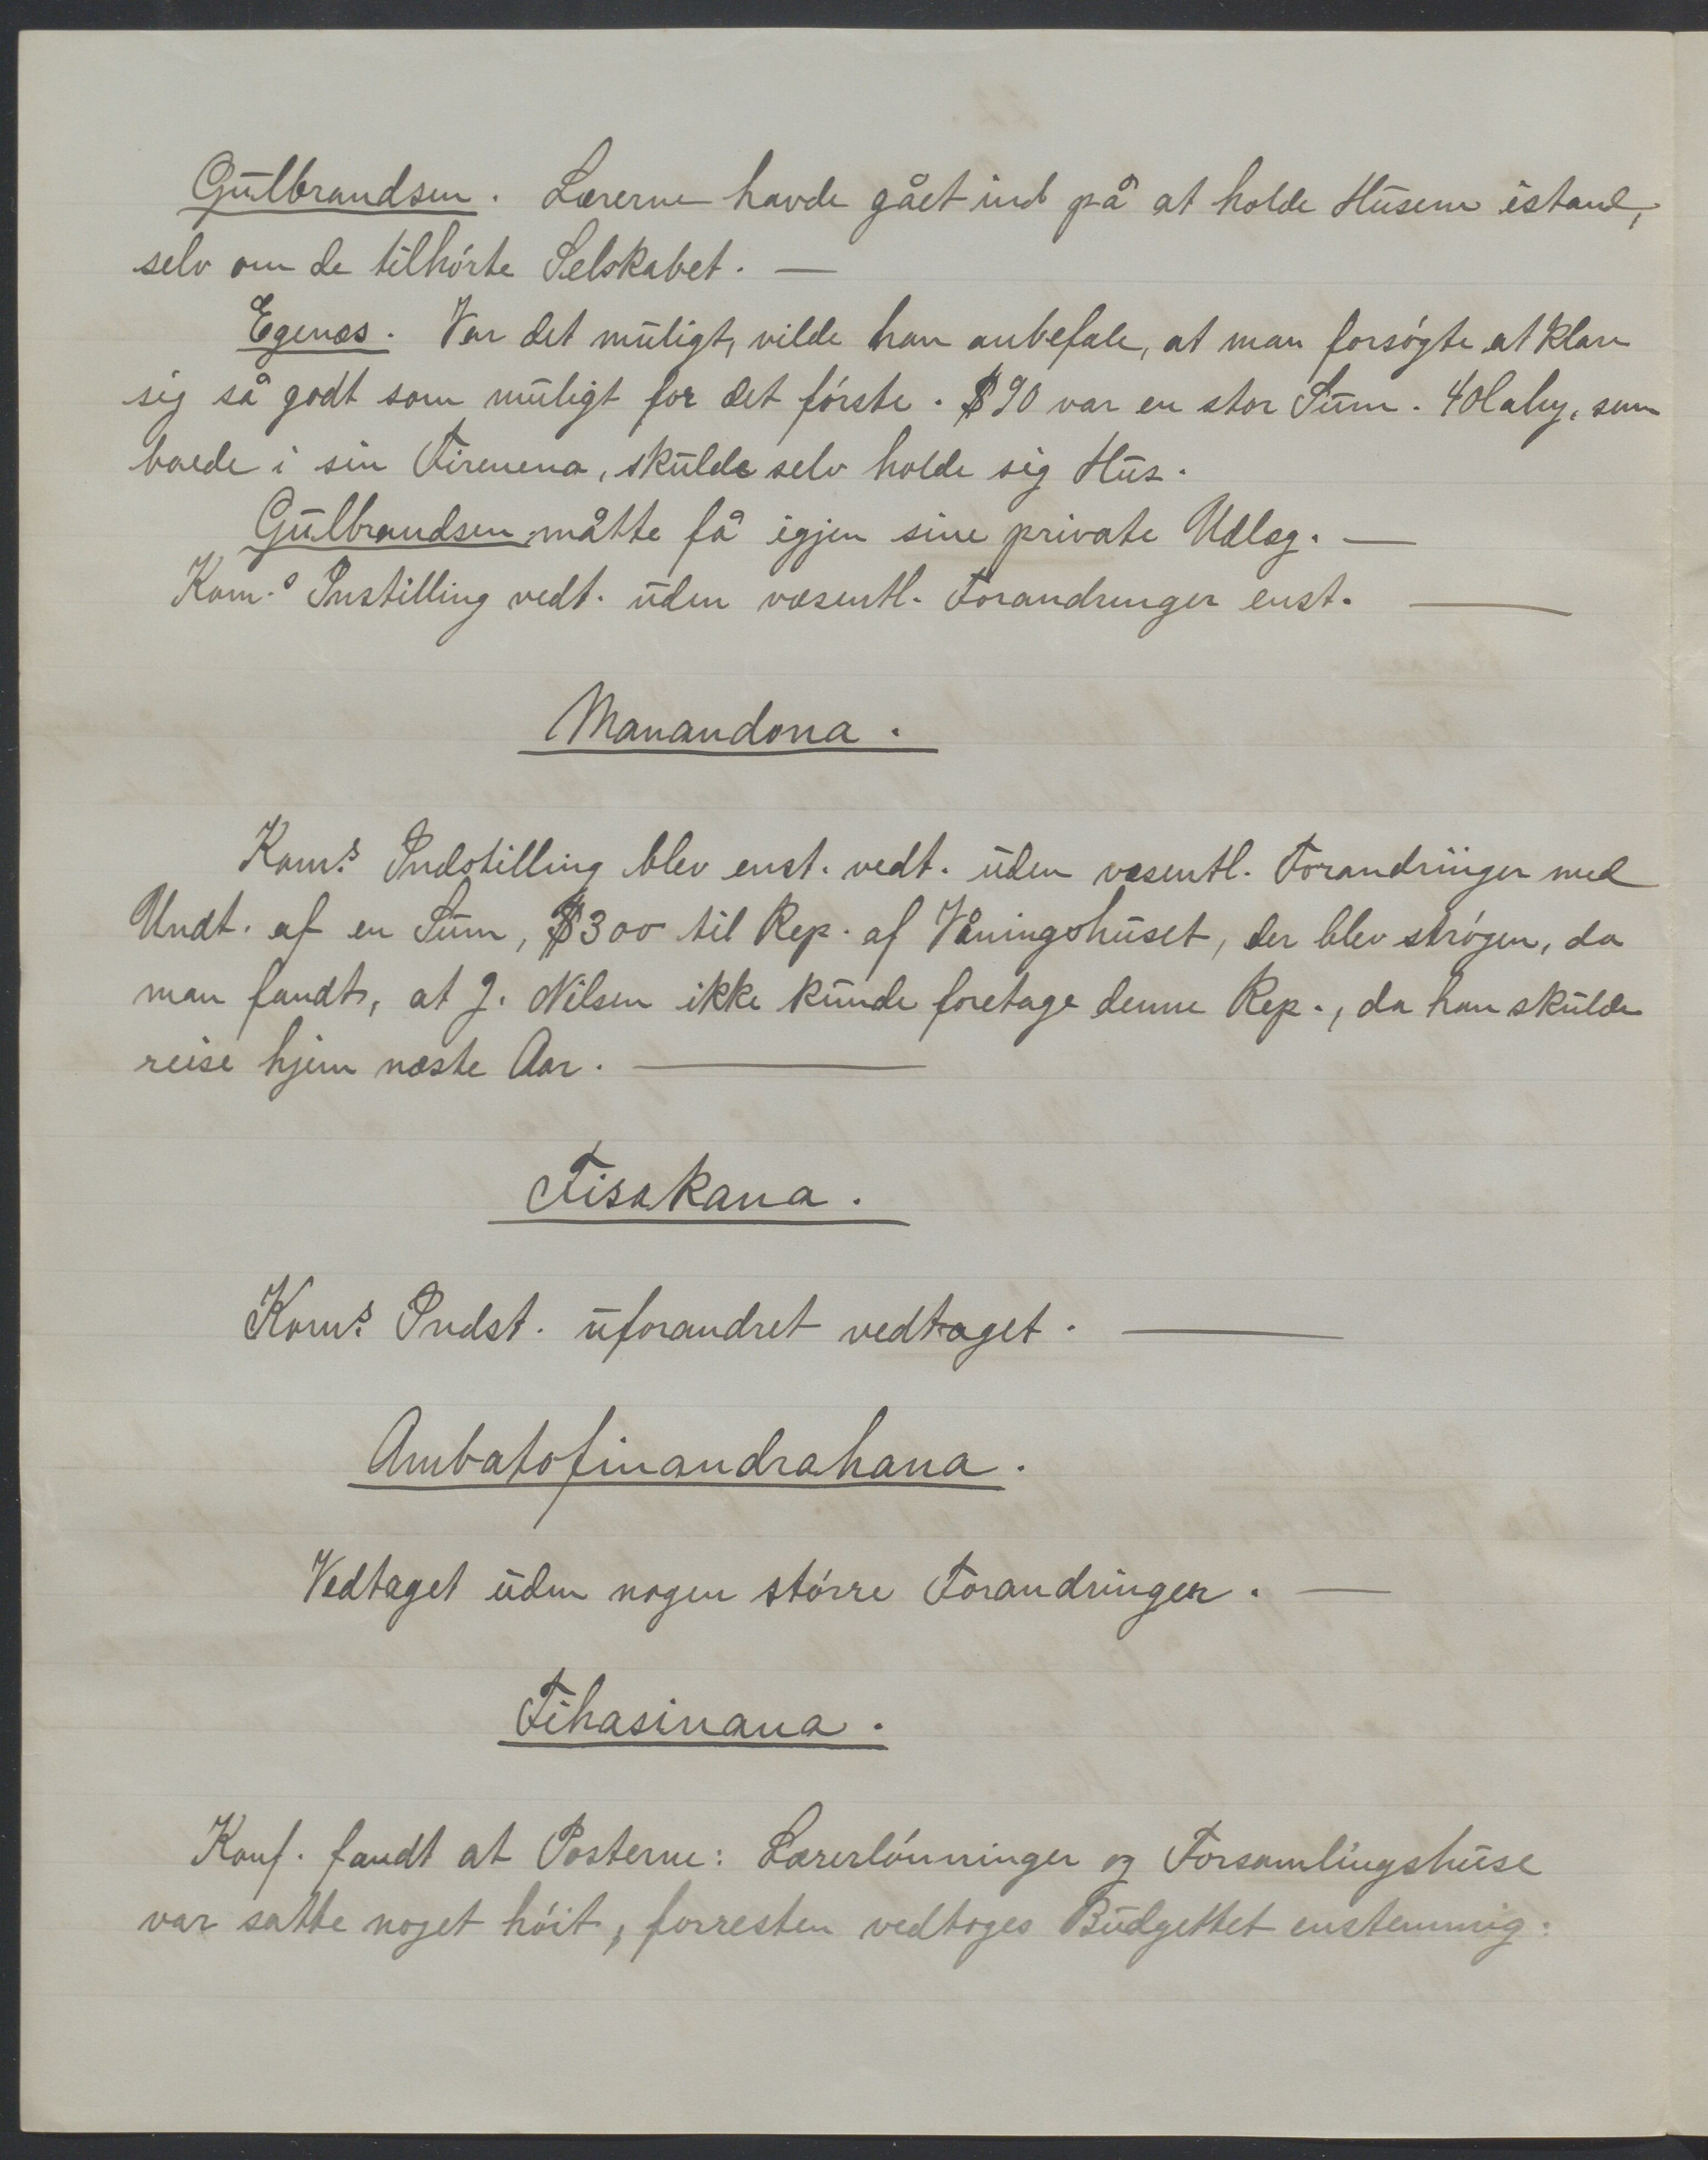 Gulbrandsen. Lærerne havde gået ind på at holde Husene istand,
selv om de tilhörte Selskabet. —
Egenæs. Var det muligt, vilde han anbefale, at man forsögte at klare
sig så godt som muligt for det förste. $90 var en stor Sum. som
boede i sin Firenena, skulde selv holde sig Hus.
Gulbrandsen måtte få igjen sine private Udlæg. —
Kom.s Instilling vedt. uden væsentl. Forandringer enst. —
Manandona.
Kom.s Indstilling blev enst. vedt. uden væsentl. Forandringer med
Undt. af en Sum, $300 til Rep. af Våningshuset, der blev strögen, da
man fandt, at J. Nilsen ikke kunde foretage denne Rep., da han skulde
reise hjem næste Aar. —
Fisakana.
Kom.s Indst. uforandret vedtaget. —
Ambatofinandrahana.
Vedtaget uden nogen större Forandringer. —
Fihasinana.
Konf. fandt at Posterne: Lærerlönninger og Forsamlingshuse
var satte noget höit, forresten vedtoges Budgettet enstemmig.